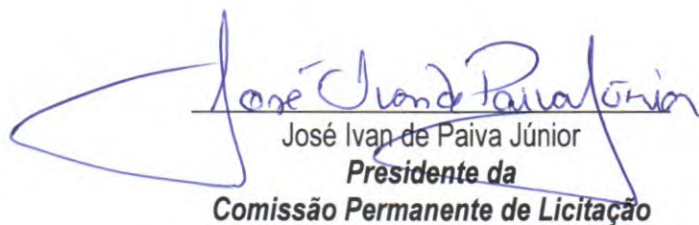 José Ivan de Paiva Júnior
José Ivan de Paiva Júnior
Presidente da
Comissão Permanente de Licitação